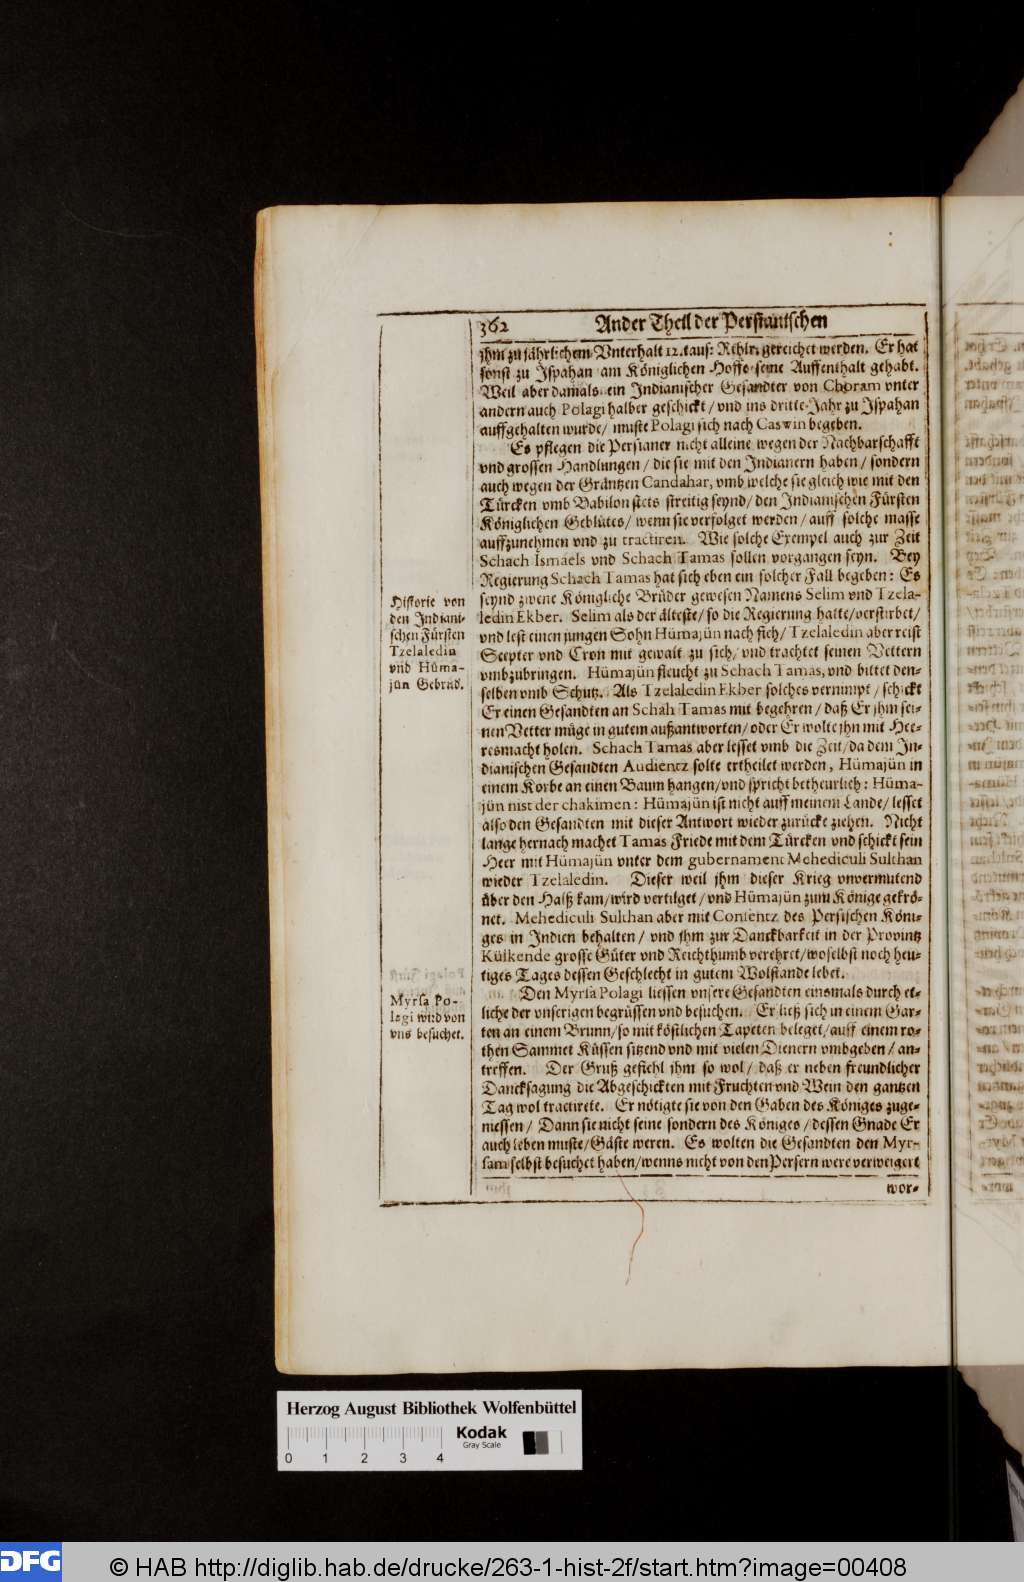 362 Ander Theil der Persianischen
jhm zu jährlichem Vnterhalt 12. taus: Rthlr. gereichet werden. Er hat
sonst zu Jspahan am Königlichen Hoffe seine Auffenthalt gehabt.
Weil aber damals ein Jndianischer Gesandter von Choram vnter
andern auch Polagi halber geschickt / vnd ins dritte Jahr zu Jspahan
auffgehalten wurde / muste Polagi sich nach Caswin begeben.
Es pflegen die Persianer nicht alleine wegen der Nachbarschafft
vnd grossen Handlungen / die sie mit den Jndianern haben / sondern
auch wegen der Gräntzen Candahar, vmb welche sie gleich wie mit den
Türcken vmb Babilon stets streitig seynd / den Jndianischen Fürsten
Königlichen Geblütes / wenn sie verfolget werden / auff solche masse
auffzunehmen vnd zu tractiren. Wie solche Exempel auch zur Zeit
Schach Ismaels vnd Schach Tamas sollen vorgangen seyn. Bey
Regierung Schach Tamas hat sich eben ein solcher Fall begeben: Es
seynd zwene Königliche Brüder gewesen Namens Selim vnd Tzela-
ledin Ekber. Selim als der älteste / so die Regierung hatte / verstirbet /
vnd lest einen jungen Sohn Hümajün nach sich / Tzelaledin aber reist
Scepter vnd Cron mit gewalt zu sich / vnd trachtet seinen Vettern
vmbzubringen. Hümajün fleucht zu Schach Tamas, vnd bittet den-
selben vmb Schutz. Als Tzelaledin Ekber solches vernimpt / schickt
Er einen Gesandten an Schah Tamas mit begehren / daß Er jhm sei-
nen Vetter müge in gutem außantworten / oder Er wolte jhn mit Hee-
resmacht holen. Schach Tamas aber lesset vmb die Zeit / da dem Jn-
dianischen Gesandten Audientz solte ertheilet werden, Hümajün in
einem Korbe an einen Baum hangen / vnd spricht betheurlich: Hüma-
jün nist der chakimen: Hümajün ist nicht auff meinem Lande / lesset
also den Gesandten mit dieser Antwort wieder zurücke ziehen. Nicht
lange hernach machet Tamas Friede mit dem Türcken vnd schickt sein
Heer mit Hümajün vnter dem gubernament Mehediculi Sulthan
wieder Tzelaledin. Dieser weil jhm dieser Krieg vnvermutend
über den Halß kam / wird vertilget / vnd Hümajün zum Könige gekrö-
net. Mehediculi Sulthan aber mit Contentz des Persischen Köni-
ges in Jndien behalten / vnd jhm zur Danckbarkeit in der Provintz
Külkende grosse Güter vnd Reichthumb verehret / woselbst noch heu-
tiges Tages dessen Geschlecht in gutem Wolstande lebet.
Den Myrsa Polagi liessen vnsere Gesandten einsmals durch et-
liche der vnserigen begrüssen vnd besuchen. Er ließ sich in einem Gar-
ten an einem Brunn / so mit köstlichen Tapeten beleget / auff einem ro-
then Sammet Küssen sitzend vnd mit vielen Dienern vmbgeben / an-
treffen. Der Gruß gefiehl jhm so wol / daß er neben freundlicher
Dancksagung die Abgeschickten mit Fruchten vnd Wein den gantzen
Tag wol tractirete. Er nötigte sie von den Gaben des Königes zuge-
niessen / Dann sie nicht seine sondern des Königes / dessen Gnade Er
auch leben muste / Gäste weren. Es wolten die Gesandten den Myr-
sam selbst besuchet haben / wenns nicht von den Persern were verweigert
wor-
Historie von
den Jndiani-
schen Fürsten
Tzelaledin
vnd Hüma-
jün Gebrüd.
Myrsa Po-
lagi wird von
vns besuchet.
Herzog August Bibliothek Wolfenbüttel
Kodak
Gray Scale
0 1 2 3 4
DFG
© HAB http://diglib.hab.de/drucke/263-1-hist-2f/start.htm?image=00408